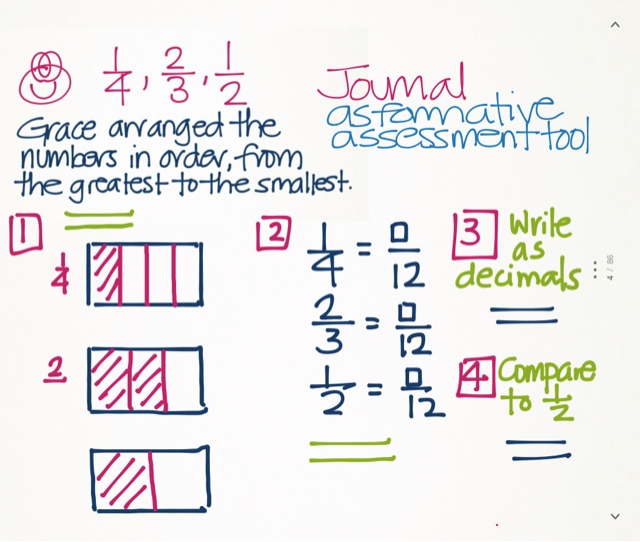 1/4, 2/3, 1/2
Journal
as formative
assessment tool
Grace arranged the
numbers in order, from
the greatest to the smallest.
1
1/4
2
2
1/4 = □/12
2/3 = □/12
1/2 = □/12
3 Write
as
decimals
4 Compare
to 1/2
4 / 86